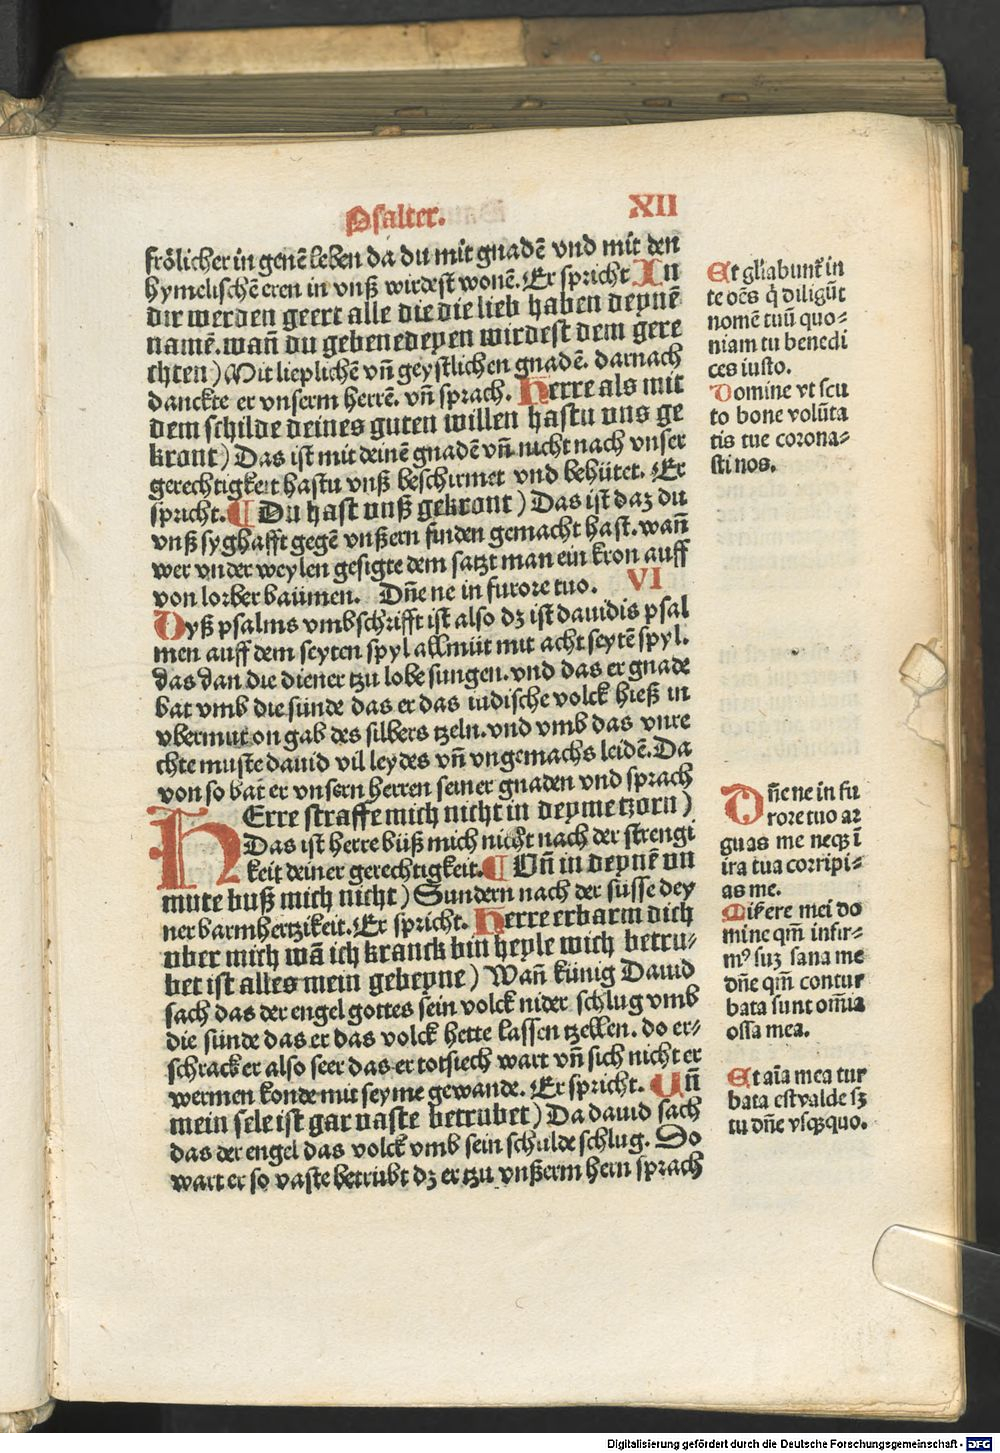 Psalter.
XII
frölicher in genē leben da du mit gnadē vnd mit den
hymelischē eren in vnß wirdest wonē. Er spricht In
dir werden geert alle die die lieb haben deynē
namē. wañ du gebenedeyen wirdest dem gere
chten) Mit lieplichē vñ geystlichen gnadē. darnach
danckte er vnserm herrē. vñ sprach. Herre als mit
dem schilde deines guten willen hastu vns ge
kront) Das ist mit deinē gnadē vñ nicht nach vnser
gerechtigkeit hastu vnß beschirmet vnd behütet. Er
spricht. ¶ Du hast vnß gekront) Das ist daz du
vnß syghafft gegē vnßern finden gemacht hast. wañ
wer vnder weylen gesigte dem satzt man ein kron auff
von lorber baümen. Dñe ne in furore tuo. VI
Dyß psalms vmbschrifft ist also dz ist dauidis psal
men auff dem seyten spyl allmüt mit acht seytē spyl.
das dan die diener tzu lobe sungen. vnd das er gnade
bat vmb die sünde das er das iudische volck hieß in
vbermut on gab des silbers tzeln. vnd vmb das vnre
chte muste dauid vil leydes vñ vngemachs leidē. Da
von so bat er vnsern herren seiner gnaden vnd sprach
HErre straffe mich nicht in deyme tzorn)
Das ist herre büß mich nicht nach der strengi
keit deiner gerechtigkeit. ¶ Vñ in deynē vn
mute buß mich nicht) Sundern nach der süsse dey
ner barmhertzikeit. Er spricht. Herre erbarm dich
uber mich wā ich kranck bin heyle mich betru⸗
bet ist alles mein gebeyne) Wañ künig Dauid
sach das der engel gottes sein volck nider schlug vmb
die sünde das er das volck hette lassen tzellen. do er⸗
schrack er also seer das er totsiech wart vñ sich nicht er
wermen konde mit seyme gewande. Er spricht. Uñ
mein sele ist gar vaste betrubet) Da dauid sach
das der engel das volck vmb sein schulde schlug. Do
wart er so vaste betrübt dz er tzu vnßerm hern sprach
Et gl̄iabunt̄ in
te oēs q̇ diligūt
nomē tuū quo⸗
niam tu benedi
ces iusto.
Domine vt scu
to bone volūta
tis tue corona⸗
sti nos.
Dñe ne in fu
rore tuo ar
guas me neqꝫ ī
ira tua corripi⸗
as me.
Misere mei do
mine qm̄ infir⸗
mꝰ suꝫ sana me
dñe qm̄ contur
bata sunt om̄ia
ossa mea.
Et aīa mea tur
bata est valde sꝫ
tu dñe vsqꝫquo.
Digitalisierung gefördert durch die Deutsche Forschungsgemeinschaft - DFG